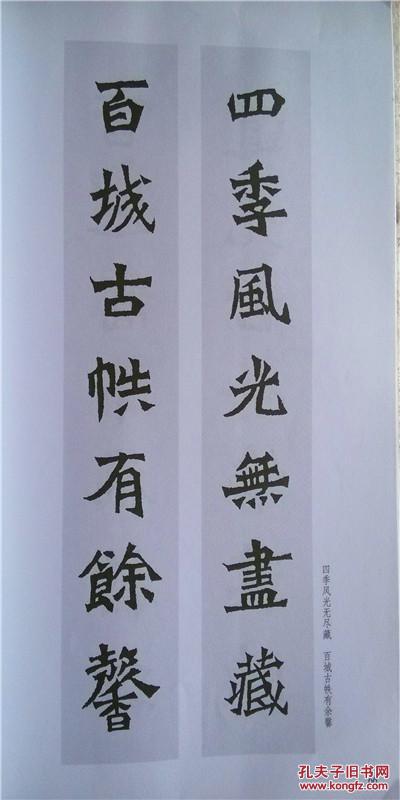 四季風光無盡藏
百城古帙有餘馨
四季风光无尽藏 百城古帙有余馨
孔夫子旧书网
www.kongfz.com